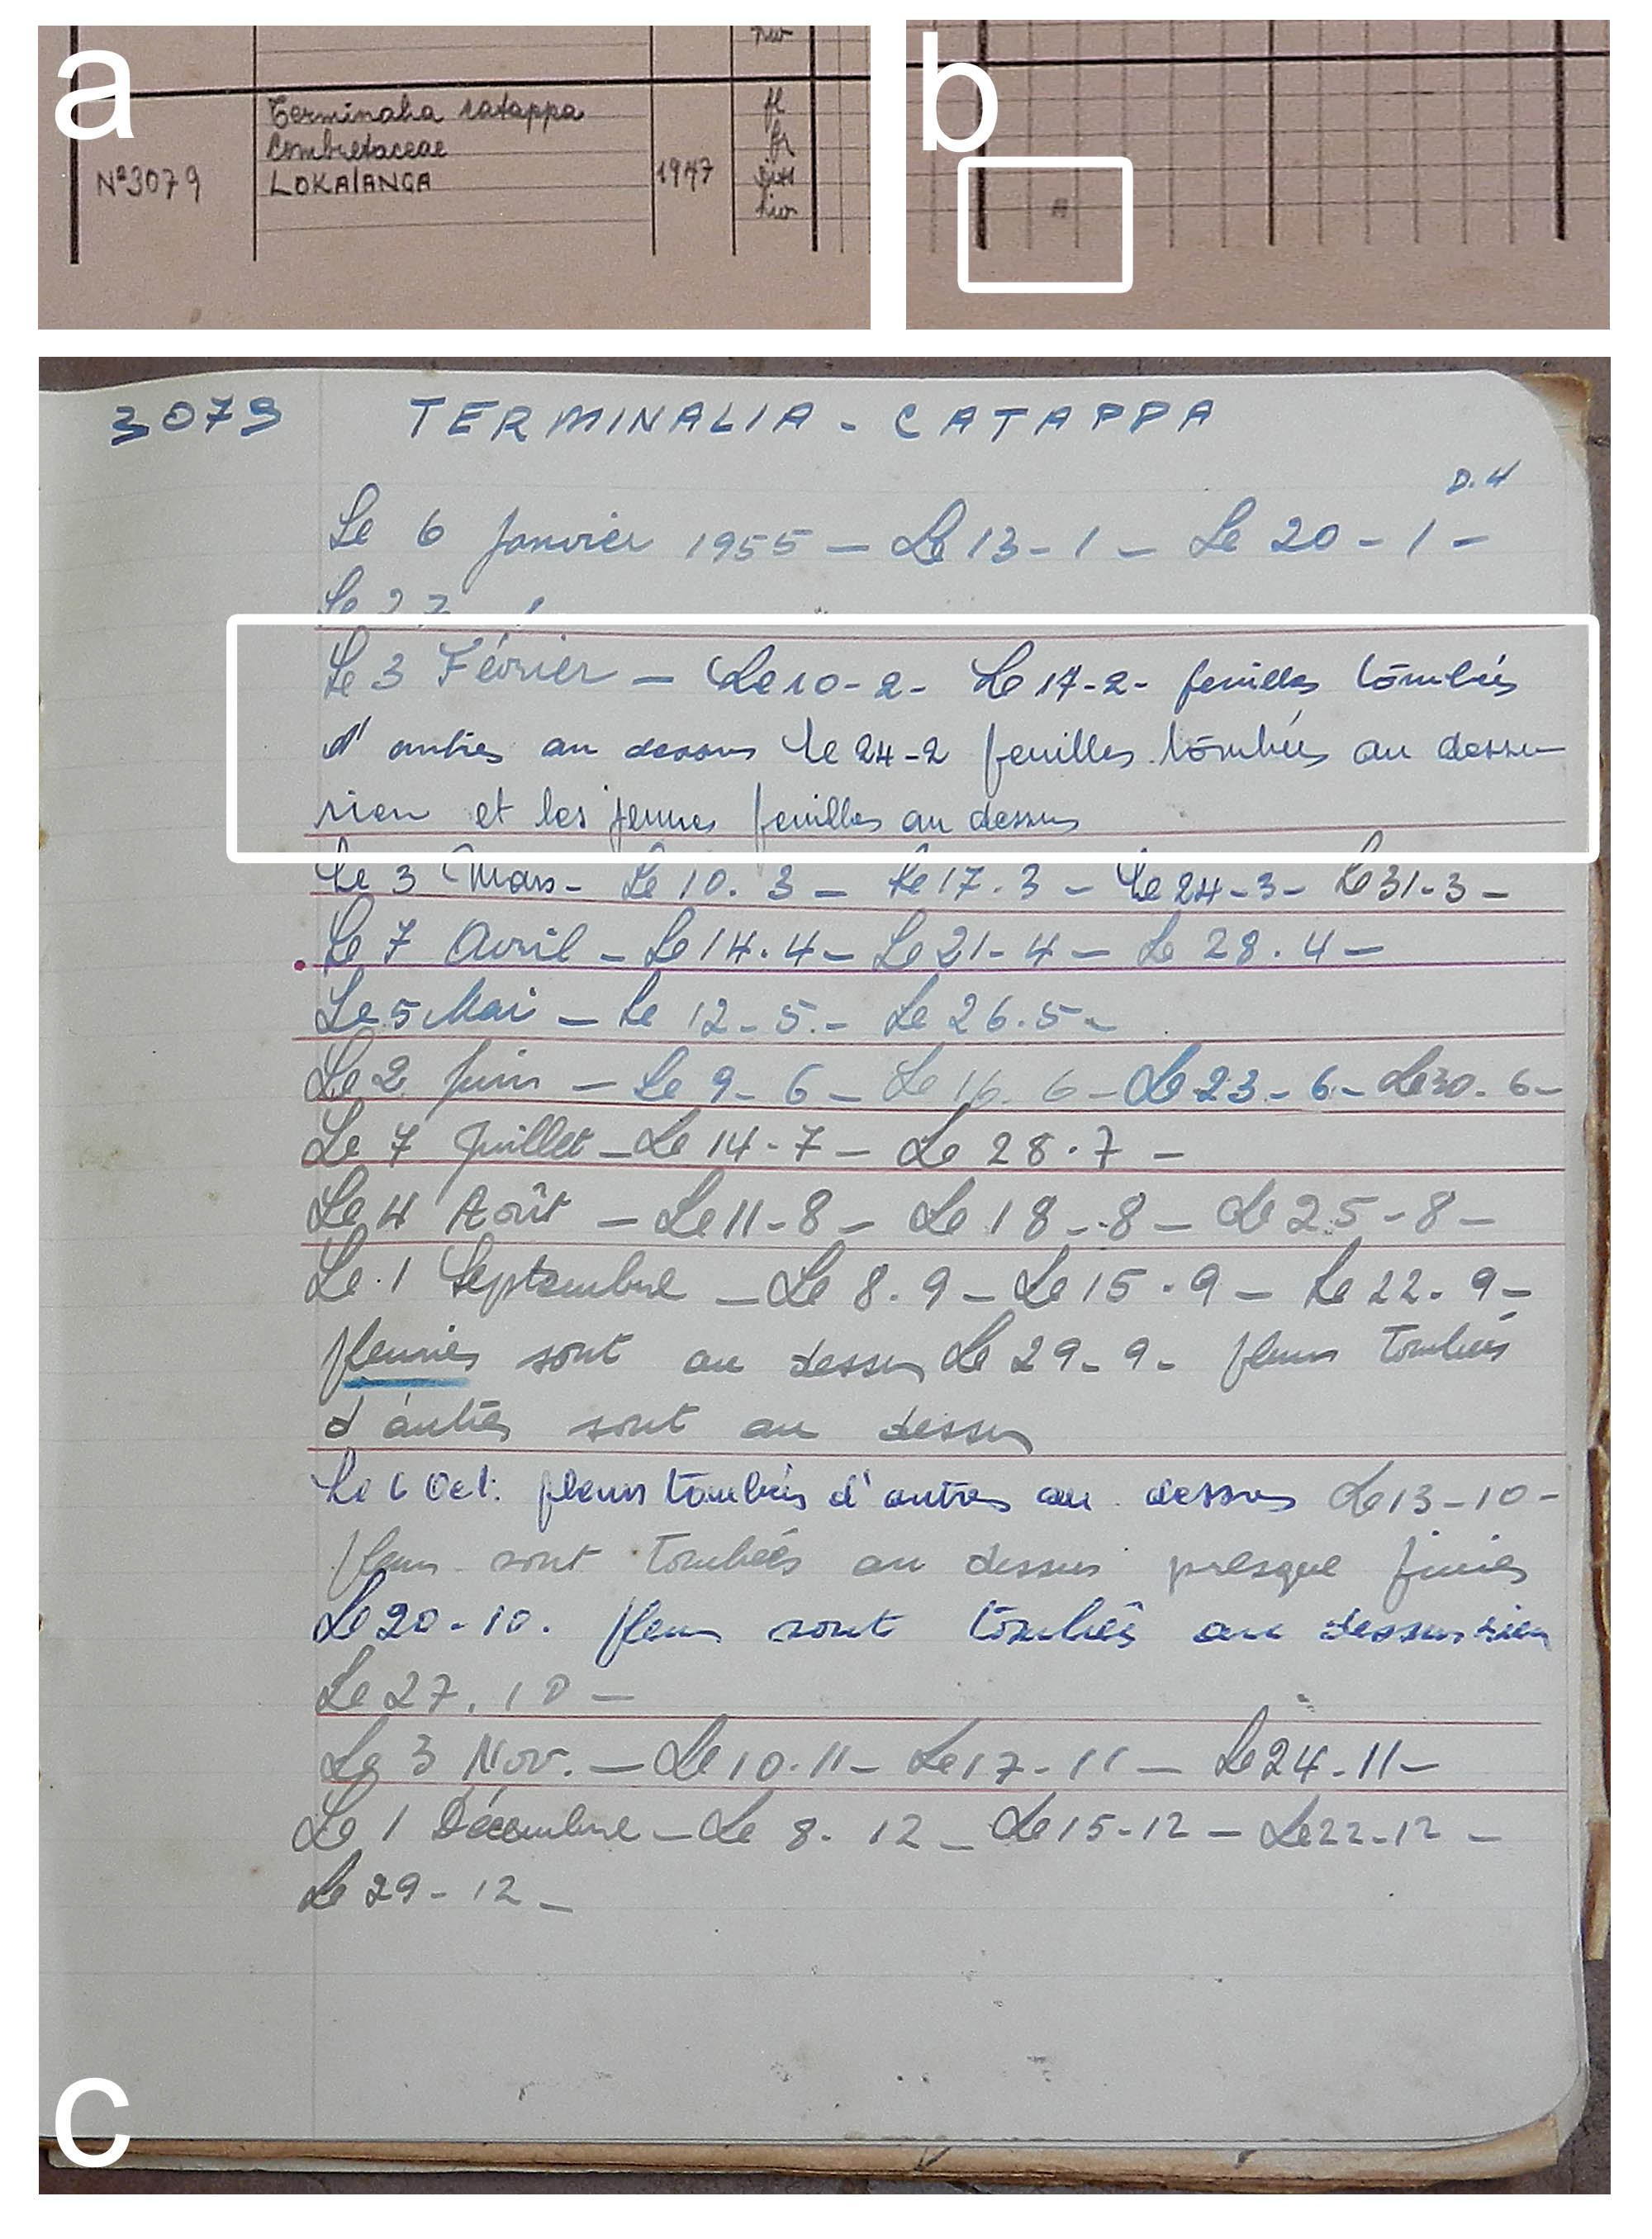 a
Terminalia catappa
fl
Combretaceae
fr
Nº3079 LOKAIANGA 1947
b
3079 TERMINALIA - CATAPPA
D.4
Le 6 Janvier 1955 — Le 13-1 — Le 20-1-
Le 27 1
Le 3 Février — Le 10-2- Le 17-2- feuilles tombées
d'autres au dessus Le 24-2 feuilles tombées au dessus
rien et les jeunes feuilles au dessus
Le 3 Mars- Le 10.3 — Le 17.3 — Le 24-3- Le 31-3-
Le 7 Avril — Le 14.4 — Le 21-4 — Le 28.4 —
Le 5 Mai — Le 12-5.- Le 26.5-
Le 2 Juin — Le 9-6 — Le 16.6- Le 23-6- Le 30.6-
Le 7 Juillet — Le 14-7 — Le 28.7 —
Le 4 Août — Le 11-8 — Le 18-8 — Le 25-8 —
Le 1 Septembre — Le 8.9 — Le 15.9 — Le 22.9-
fleuries sont au dessus Le 29-9- fleurs tombées
d'autres sont au dessus
Le 6 Oct. fleurs tombées d'autres au dessus Le 13-10-
fleurs sont tombées au dessus presque finies
Le 20-10. fleurs sont tombées au dessus rien
Le 27.10 —
Le 3 Nov. — Le 10.11 — Le 17-11 — Le 24.11 —
Le 1 Décembre — Le 8.12 — Le 15-12 — Le 22-12 —
Le 29-12 —
c